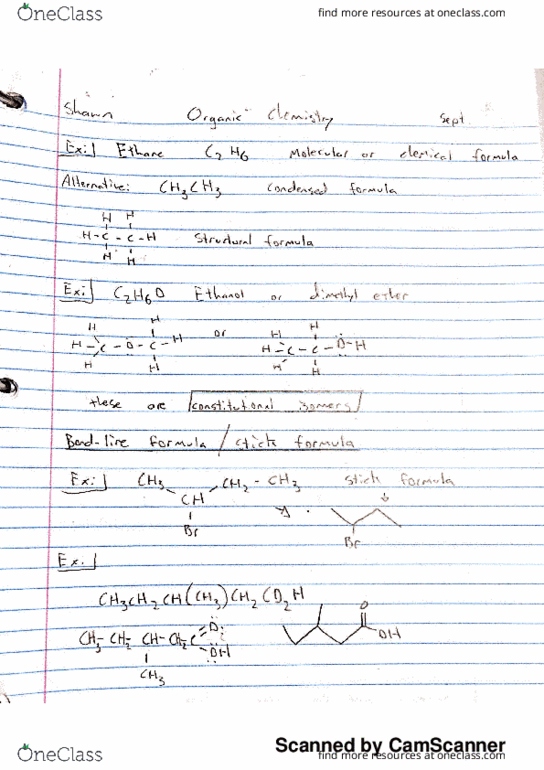 OneClass find more resources at oneclass.com
Shawn Organic Chemistry Sept
Ex:] Ethane C2H6 Molecular or chemical formula
Alternative: CH3CH3 Condensed formula
H H
H-C-C-H Structural formula
H H
Ex:] C2H6O Ethanol or dimethyl ester
H H or H H
H-C-O-C-H H-C-C-O-H
H H H H
these are constitutional isomers
Bond-line formula / stick formula
Ex:] CH3 CH2-CH3 stick formula
CH
Br Br
Ex:]
CH3CH2CH(CH3)CH2CO2H
O O
CH3-CH2-CH-CH2C OH OH
CH3
Scanned by CamScanner
OneClass find more resources at oneclass.com